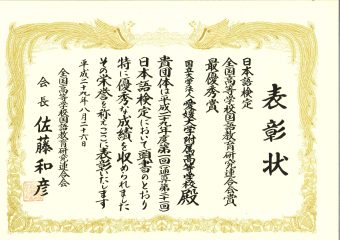 表彰状
日本語検定
全国高等学校国語教育研究連合会賞
最優秀賞
国立大学法人愛媛大学附属高等学校殿
貴団体は平成二十九年度第一回(通算第二十一回)
日本語検定において頭書のとおり
特に優秀な成績を収められました
その栄誉を称えここに表彰いたします
平成二十九年八月二十六日
全国高等学校国語教育研究連合会
会長 佐藤和彦